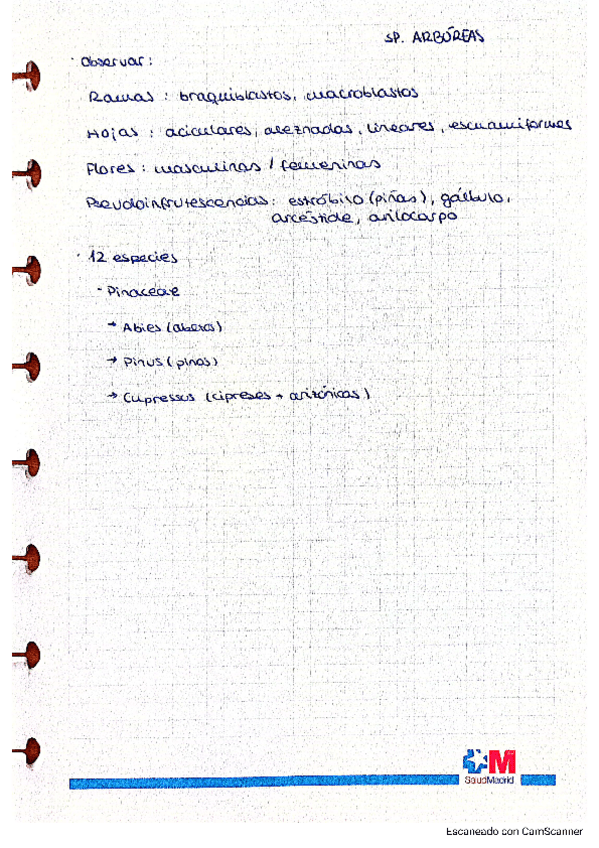 SP. ARBÓREAS
· Observar :
Ramas : braquiblastos, macroblastos
Hojas : aciculares, aleznadas, lineares, escuamiformes
Flores : masculinas / femeninas
Pseudoinfrutescencias : estróbilo (piñas), gálbulo,
arcéstide, arilocarpo
· 12 especies
- Pinaceae
→ Abies (abetos)
→ Pinus (pinos)
→ Cupressus (cipreses + arizónicas)
M
SaludMadrid
Escaneado con CamScanner